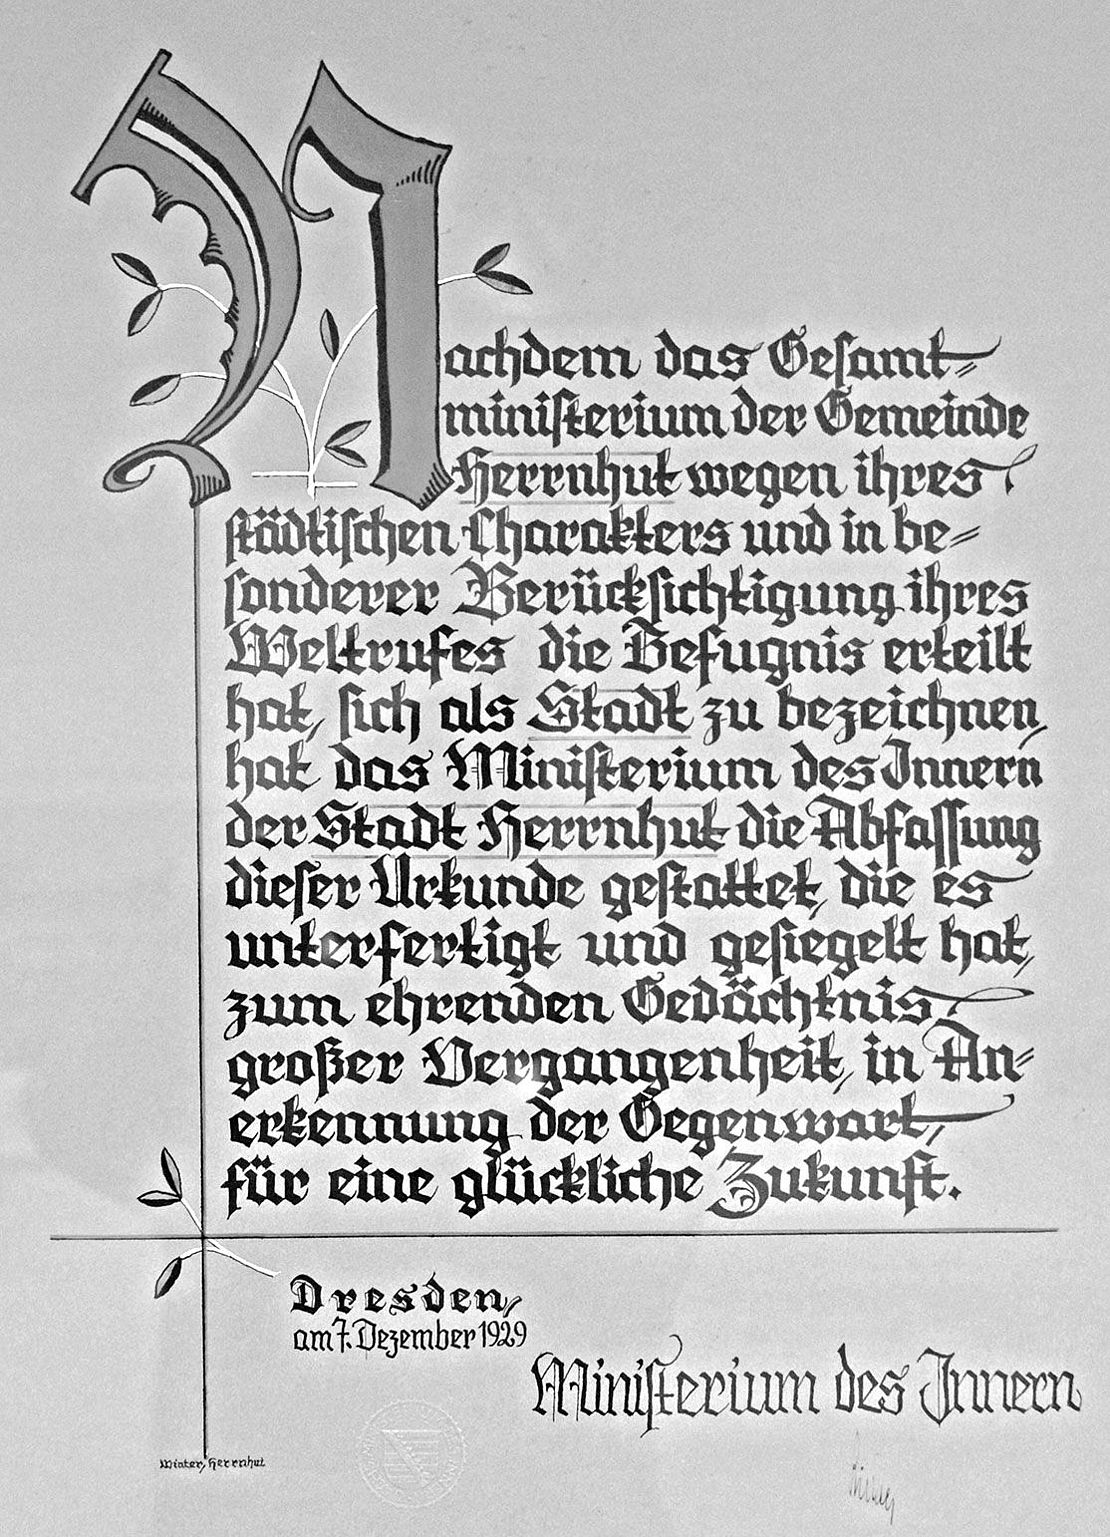 Nachdem das Gesamt=
ministerium der Gemeinde
Herrnhut wegen ihres
städtischen Charakters und in be=
sonderer Berücksichtigung ihres
Weltrufes die Befugnis erteilt
hat, sich als Stadt zu bezeichnen,
hat das Ministerium des Innern
der Stadt Herrnhut die Abfassung
dieser Urkunde gestattet, die es
unterfertigt und gesiegelt hat,
zum ehrenden Gedächtnis
großer Vergangenheit, in An=
erkennung der Gegenwart,
für eine glückliche Zukunft.
Dresden,
am 7. Dezember 1929
Ministerium des Innern
Winter, Herrnhut